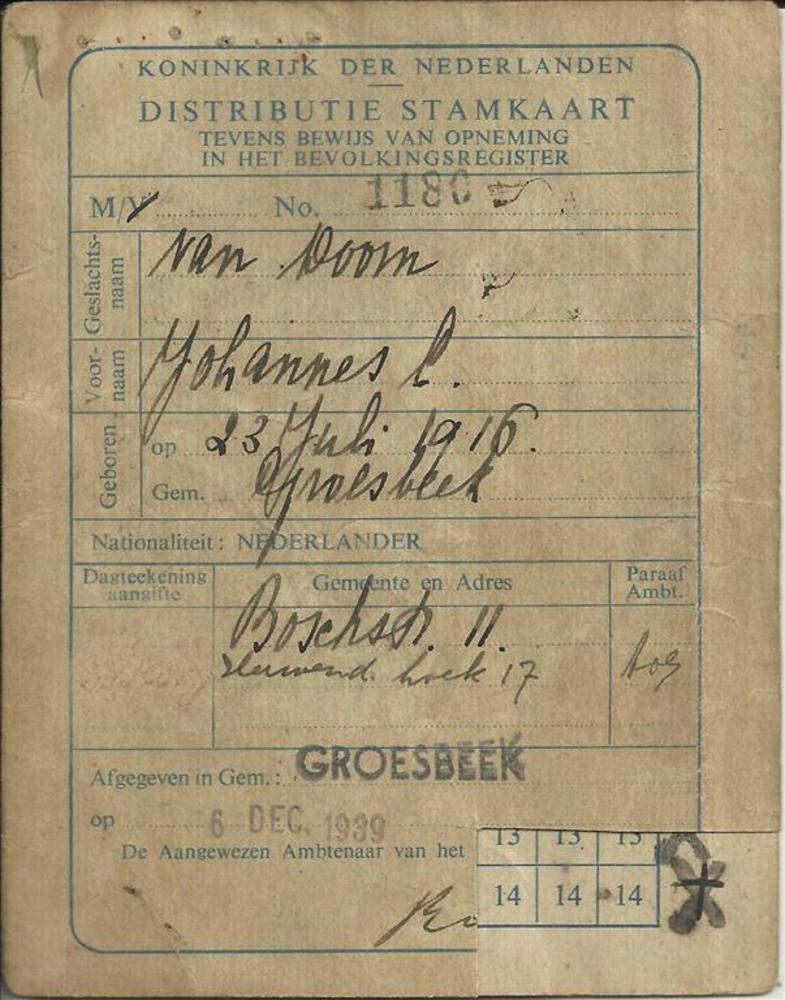 KONINKRIJK DER NEDERLANDEN
DISTRIBUTIE STAMKAART
TEVENS BEWIJS VAN OPNEMING
IN HET BEVOLKINGSREGISTER
M/V No. 1180
Geslachts-
naam
van Doorn
Voor-
naam
Johannes C.
Geboren
op 23 Juli 1916.
Gem. Groesbeek
Nationaliteit: NEDERLANDER
Dagteekening
aangifte
Gemeente en Adres
Paraaf
Ambt.
Boschstr. 11.
hoek 17
Afgegeven in Gem.: GROESBEEK
op 6 DEC. 1939
De Aangewezen Ambtenaar van het
13 13 13
14 14 14